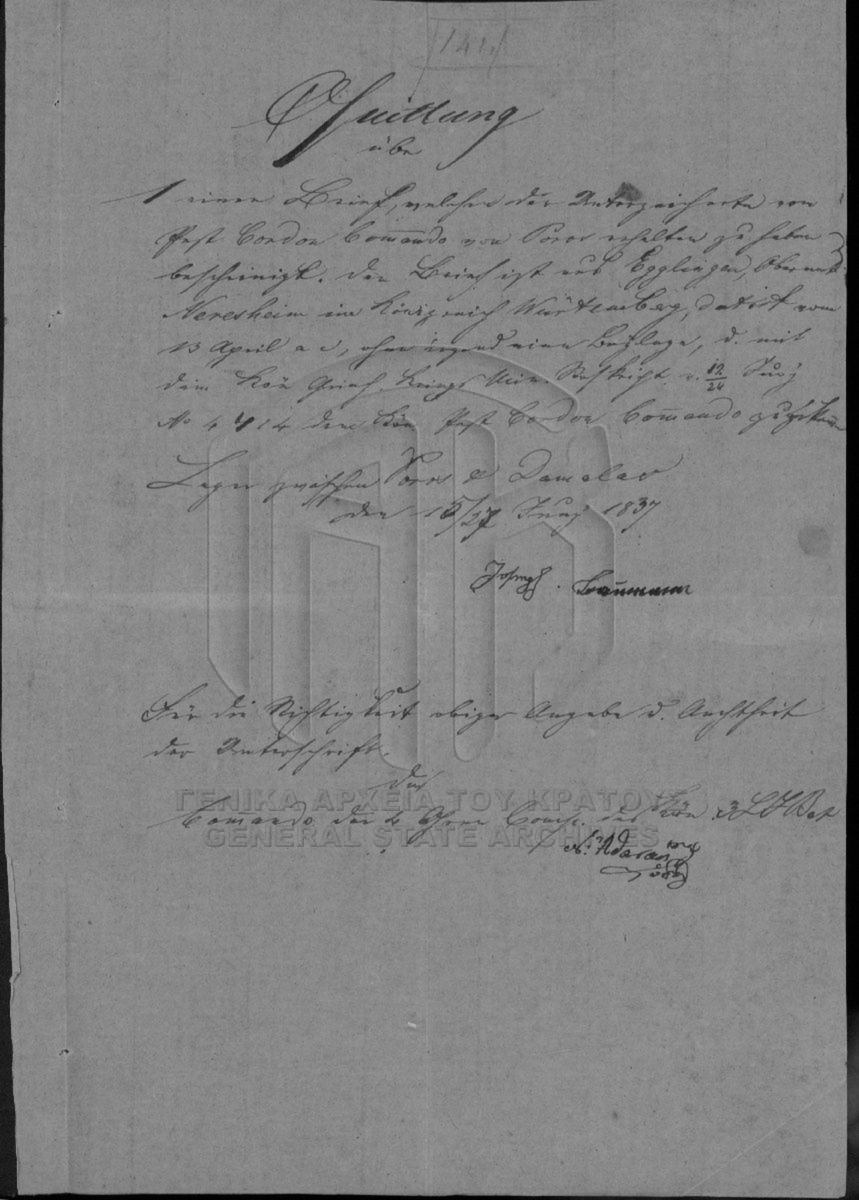 141
Quittung
über
1 einen Brief, welchen der Unterzeichnete vom
Pest Cordon Commando von Poros erhalten zu haben
bescheinigt. Der Brief ist aus Egglingen, Oberamt
Neresheim im Königreich Würtemberg, datirt vom
13 April a c, ohne irgend eine Beylage, u. mit
dem Kön Griech. Kriegs Min. v. 12/24 Juny
No 4414 dem Kön Pest Cordon Commando
Lager zwischen Poros & Damalas
den 15/27 Juny 1837
Joseph Baumann
Für die Richtigkeit obiger Angabe u. Aechtheit
der Unterschrift.
Das
Commando der Comp. des Kön 3
ΓΕΝΙΚΑ ΑΡΧΕΙΑ ΤΟΥ ΚΡΑΤΟΥΣ
GENERAL STATE ARCHIVES